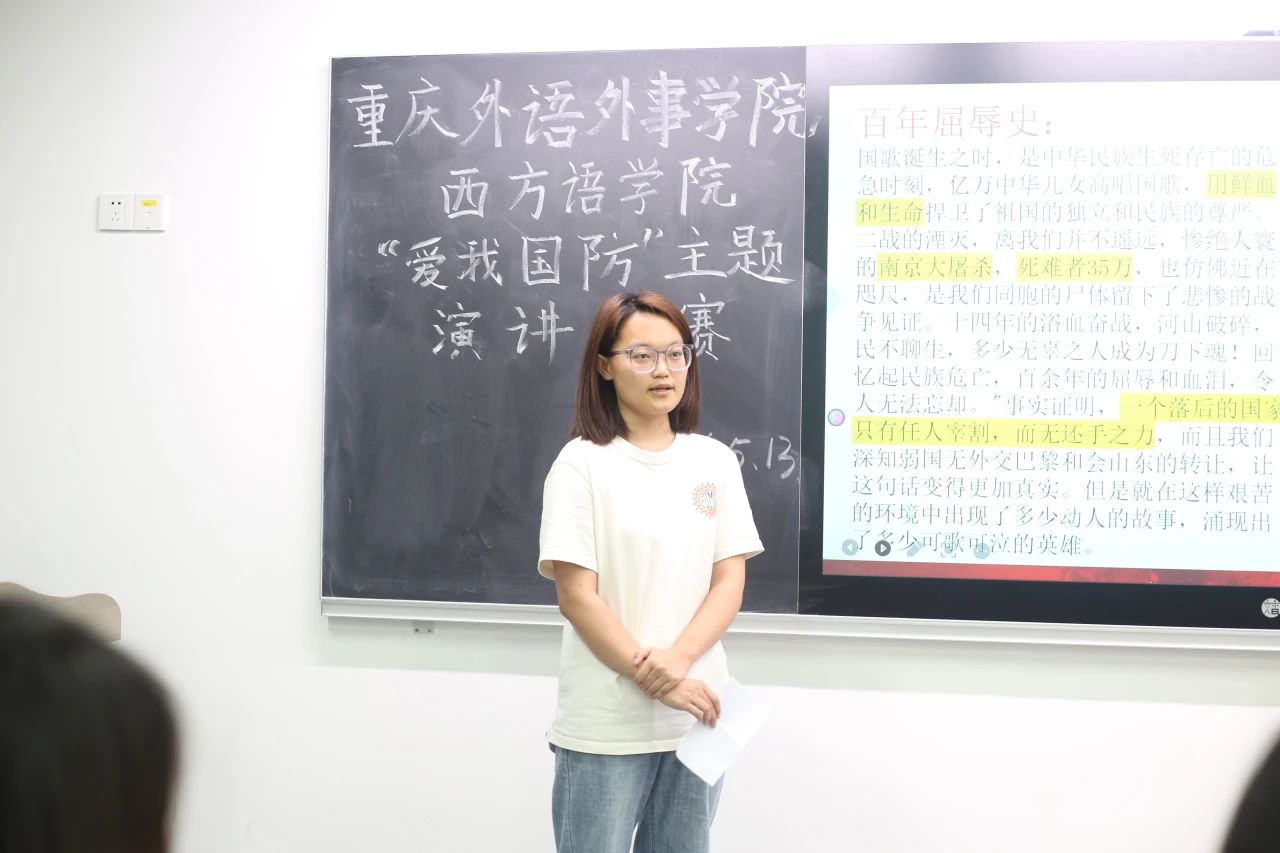 重庆外语外事学院
西方语学院
“爱我国防”主题
演讲 赛
5.13
百年屈辱史：
国歌诞生之时，是中华民族生死存亡的危
急时刻，亿万中华儿女高唱国歌，用鲜血
和生命捍卫了祖国的独立和民族的尊严。
二战的湮灭，离我们并不遥远，惨绝人寰
的南京大屠杀，死难者35万，也仿佛近在
咫尺，是我们同胞的尸体留下了悲惨的战
争见证。十四年的浴血奋战，河山破碎，
民不聊生，多少无辜之人成为刀下魂！回
忆起民族危亡，百余年的屈辱和血泪，令
人无法忘却。"事实证明，一个落后的国家
只有任人宰割，而无还手之力，而且我们
深知弱国无外交巴黎和会山东的转让，让
这句话变得更加真实。但是就在这样艰苦
的环境中出现了多少动人的故事，涌现出
了多少可歌可泣的英雄。